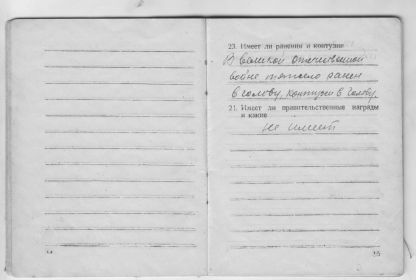 23. Имеет ли ранения и контузии
В Великой отечественной
войне тяжело ранен
в голову, контузия в голову.
21. Имеет ли правительственные награды
и какие
не имеет